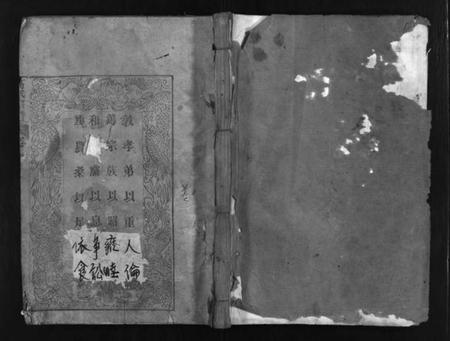 敦孝弟以重人倫
篤宗族以昭雍睦
和黨以息爭訟
重農桑以足依食